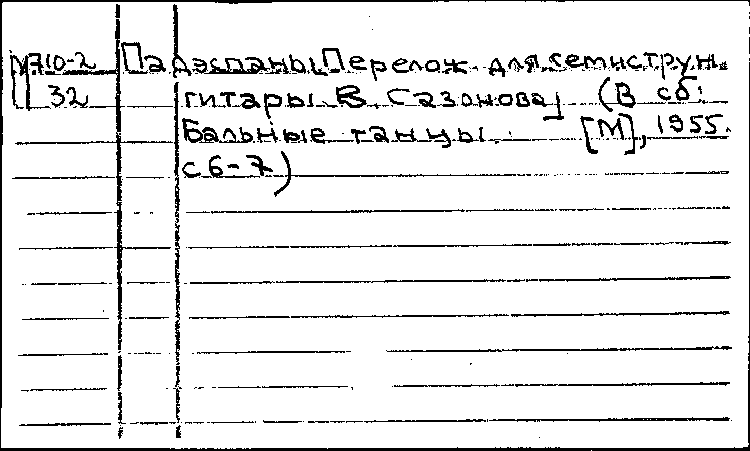 М710-2 Падэспаны. Перелож. для семиструн.
32 гитары В. Сазонова. (В сб:
Бальные танцы. [М], 1955.
с 6-7)